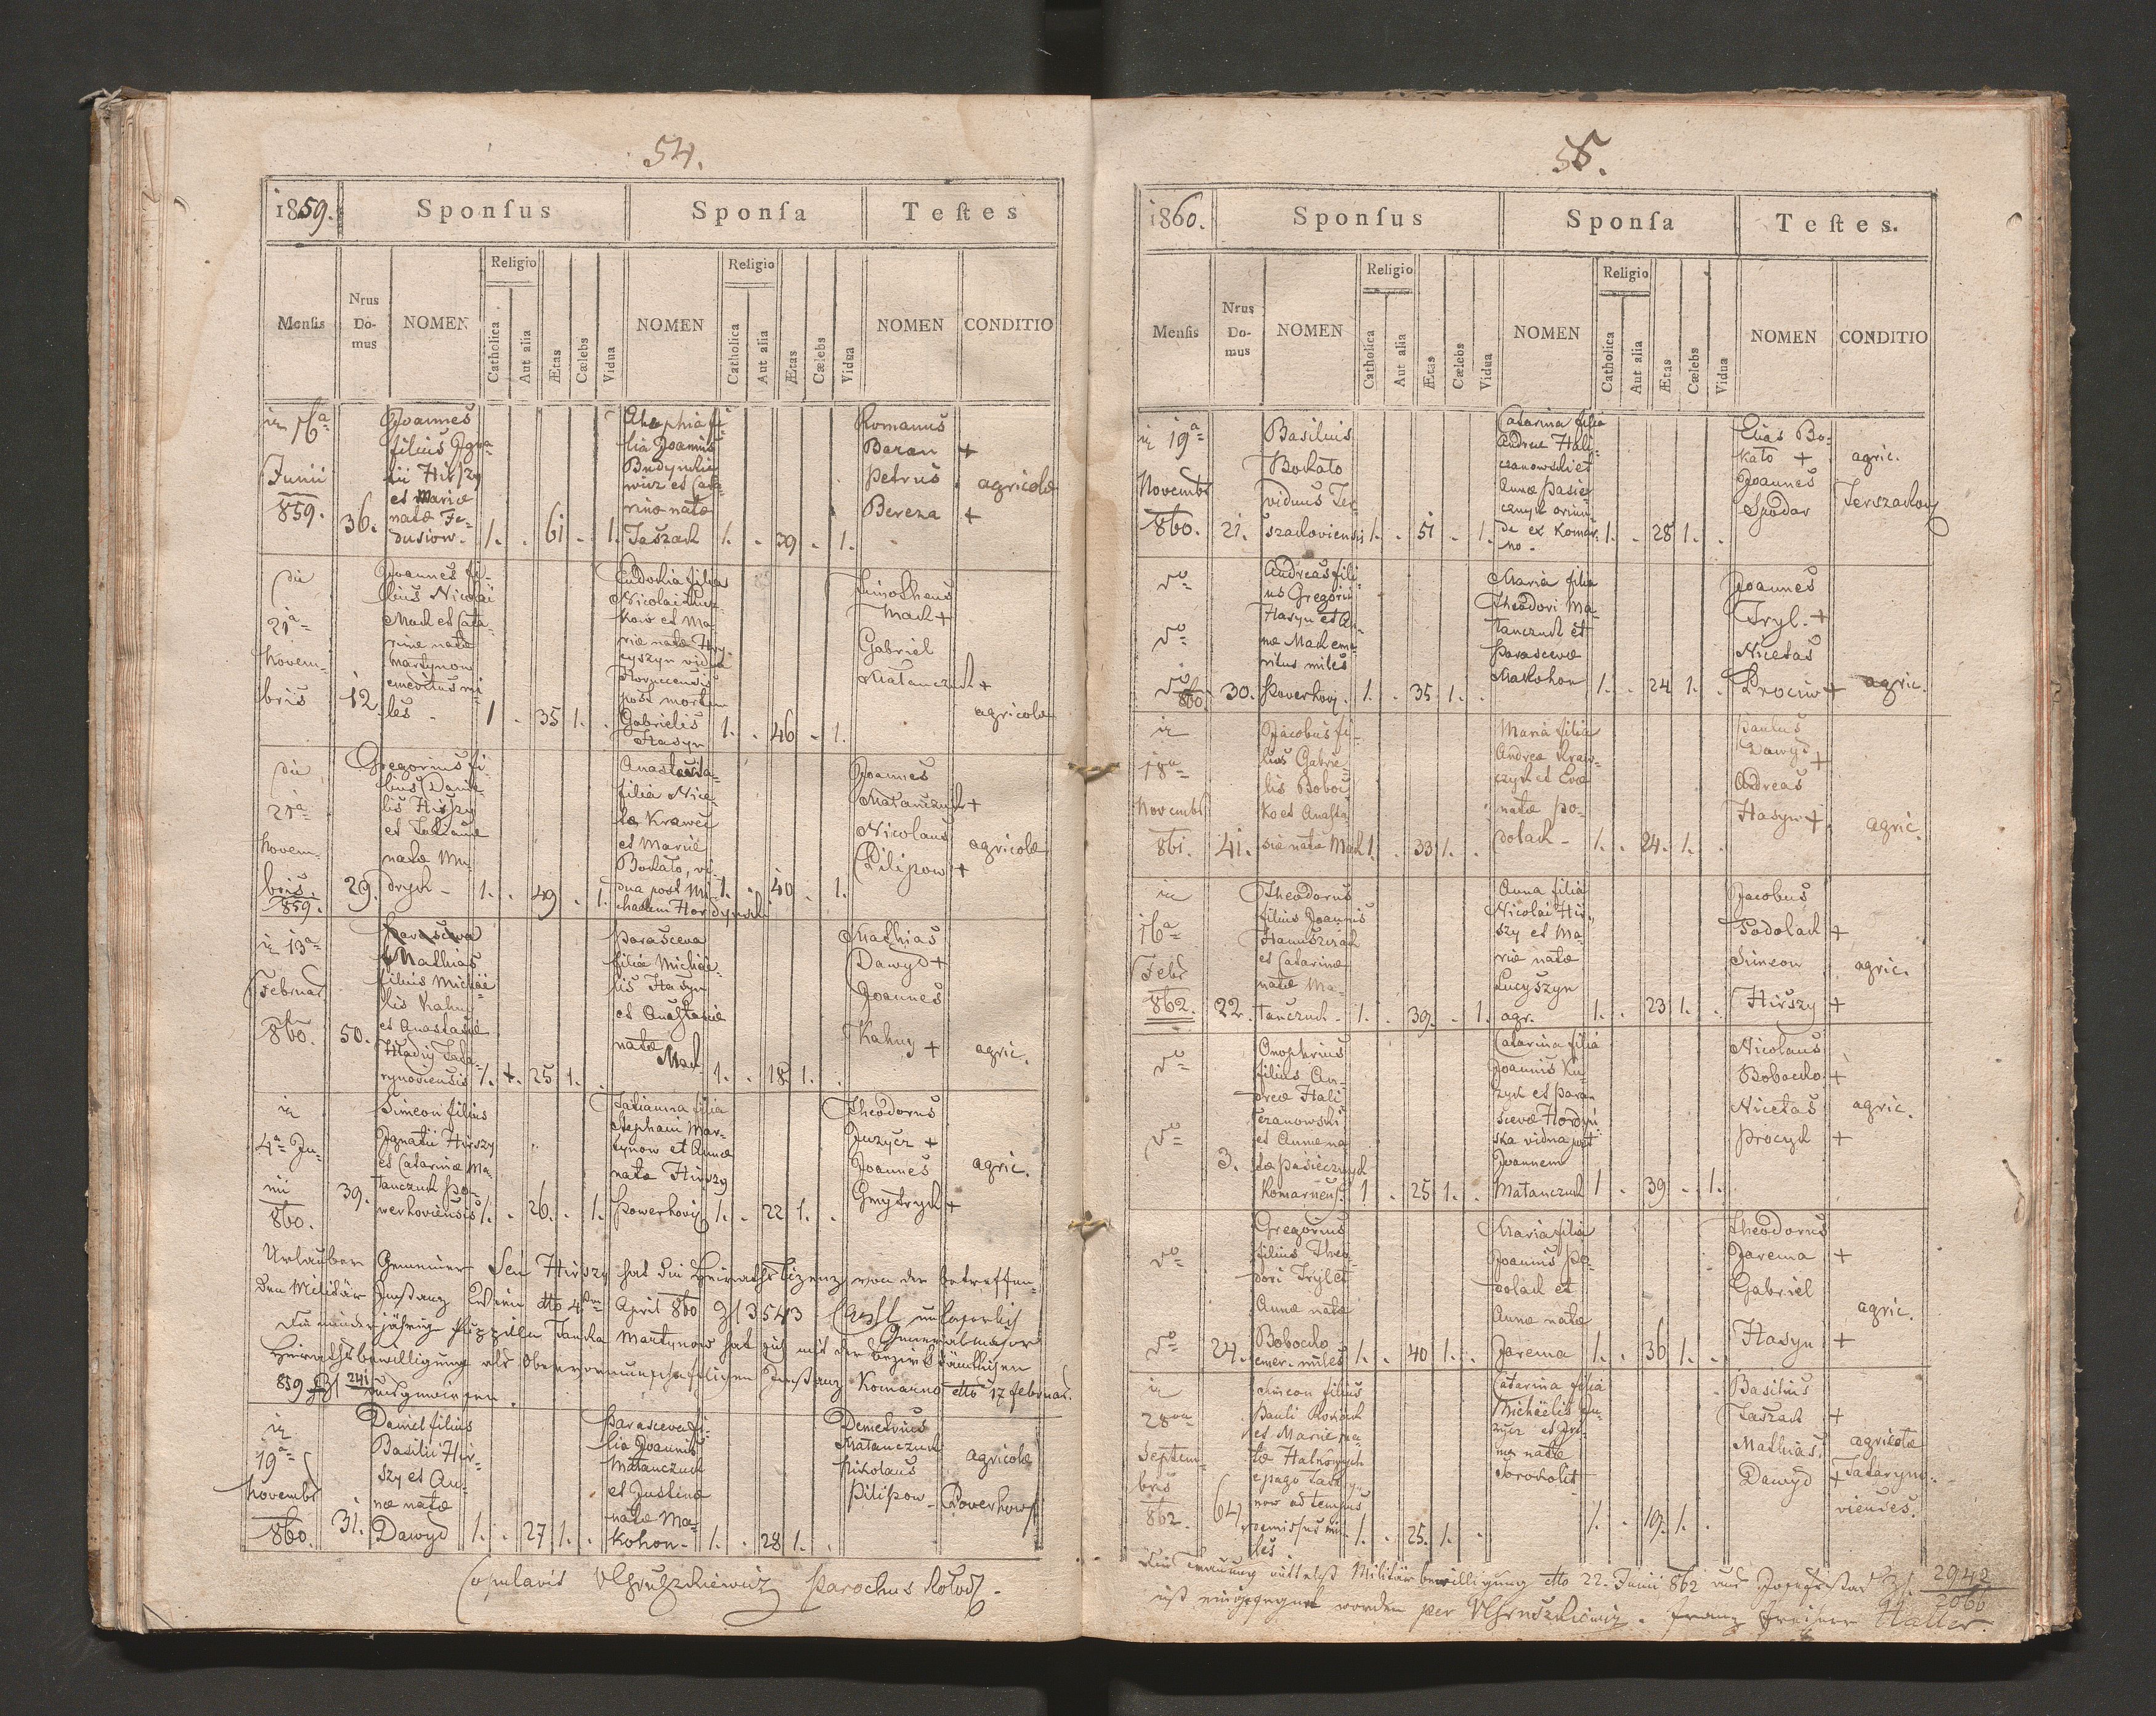 54.
1859.
Sponſus
Sponſa
Teſtes
Menſis
Nrus
Do-
mus
NOMEN
Religio
Catholica
Aut alia
Ætas
Cælebs
Vidua
NOMEN
Religio
Catholica
Aut alia
Ætas
Cælebs
Vidua
NOMEN
CONDITIO
16a
Junii
859.
36.
Joannes
filius Igna
tii Hirszy
et Mariæ
natæ Fe-
dusiow.
1. . 61 . 1.
lia Joannis
rinæ natæ
Taszach
1. . 39 . 1.
Romanus
Baran +
Petrus
Bereza +
agricolæ
die
21a
Novem-
bris
12.
Joannes fi-
lius Nicolai
Mach et Cata-
rinæ natæ
Martynow
emeritus mi-
les -
1 . 35 1. .
Eudokia filia
Nicolai
kow et Ma
riæ natæ Hry-
cyszyn vidua
post mortem
Gabrielis
Hasyn
1. . 46 . 1.
Timotheus
Mach +
Gabriel
Matanczuch +
agricolæ
die
21a
Novem-
bris
859.
29.
Gregorius fi-
lius Danie-
lis Hirszy
et Tatianæ
natæ Mu-
drych -
1. . 49 . 1.
Anastasia
filia Nice-
tæ Krawec
et Mariæ
Bokato, vi-
dua post Mi-
chaelem Hordynsk
1. . 40 . 1.
Joannes
Matanczuch +
Nicolaus
Pilipow +
agricolæ
13a
Februar
860.
50.
Parasceva
Mathias
filius Michae-
lis Kahny
et Anastasiæ
Hladij Tata-
rynoviensis
1. . 25 1. .
Parasceva
filia Michae-
lis Hasyn
et Anastasiæ
natæ
Mach
1. . 18. 1. .
Mathias
Dawyd +
Joannes
Kahny +
agric.
4a Ju-
nii
860.
39.
Simeon filius
Ignatii Hirszy
et Catarinæ Ma-
tanczuch Po-
werhoviensis
1. . 26. . 1.
Tatianna filia
Stephani Mar-
tynow et Annæ
natæ Hirszy
Powerhovij
1. . 22 1. .
Theodorus
Juzycz +
Joannes
Gmytryk +
agric.
Urlauber Gemeiner Hirszy hat die Heiraths Lizenz von der betreffen-
den Militär Instanz dtto 4ten April 860 Zl 3543
Die minderjährige Martynow hat sich mit der bezirksämtlichen
Heirathsbewilligung als obervormundschaftlichen Instanz Komarno dtto 17 Februar
859 Zl 241 ausgewiesen.
19a
Novembr
860.
31.
Daniel filius
Basilii Hir-
szy et An-
næ natæ
Dawyd
1. . 27 1. .
Parasceva fi-
lia Joannis
Matanczuch
et Justinæ
natæ Ma-
kohon -
1. . 28 1. .
Demetrius
Matanczuch
Nikolaus
Pilipow -
agricolæ
Poverhow
Copulavit Parochus
55.
1860.
Sponſus
Sponſa
Teſtes.
Menſis
Nrus
Do-
mus
NOMEN
Religio
Catholica
Aut alia
Ætas
Cælebs
Vidua
NOMEN
Religio
Catholica
Aut alia
Ætas
Cælebs
Vidua
NOMEN
CONDITIO
19a
Novembr
860.
21.
Basilius
Bokato
viduus Ter-
szakoviensis
1. . 51 . 1.
Catarina filia
Andreæ Hali-
czanowski et
Annæ Pasie-
cznyk oriun-
da ex Komar-
no.
1. . 28 1. .
Elias Bo-
kato +
Joannes
Spodar
agric.
do
do
do
860
30.
Andreas fili-
us Gregorii
Hasyn et An-
næ Mach eme-
ritus miles
Poverhovij.
1. . 35 1. .
Maria filia
Theodori Ma-
tanczuch et
Parascevæ
Makohon
1. . 24 1. .
Joannes
Tryl. +
Nicetas
Prociw +
agric.
18a
Novembr
861.
41.
Jacobus fi-
lius Gabrie-
lis Boboc
ko et Anasta
siæ natæ Mach
1. . 33 1. .
Maria filia
Andreæ Kraw-
czyk et Evæ
natæ Po-
dolach -
1. . 24. 1. .
Paulus
Dawyd +
Andreas
Hasyn +
agric.
16a
Febr
862.
22.
Theodorus
filius Joannis
et Catarinæ
natæ Ma-
tanczuch -
1. . 39. . 1.
Anna filia
Nicolai Hir-
szy et Ma-
riæ natæ
Lucyszyn
agr.
1. . 23 1. .
Jacobus
Podolach +
Simeon
Hirszy +
agric.
do
do
3.
Onophrius
filius An-
dreæ Hali
czanowski
et Annæ na
tæ Pasiecznyk
Komarnens.
1 . 25 1. .
Catarina filia
Joannis Ku-
zyk et Para-
scevæ Hordyn
ska vidua post
Joannem
Matanczuch
1 . 39 . 1.
Nicolaus
Bobocko +
Nicetas
Procyk +
agric.
do
do
24.
Gregorius
filius Theo-
dori Tryl et
Annæ natæ
Bobocko
emer. miles
1. . 40 1. .
Maria filia
Joannis Po-
dolach et
Annæ natæ
Jarema
1. . 36 1. .
Theodorus
Jarema +
Gabriel
Hasyn +
agric.
28va
Septem-
bris
862.
64.
Simeon filius
Pauli
et Mariæ na-
tæ
e pago Tatary-
now ad tempus
dimissus mi-
les
1. . 25. 1. .
Catarina filia
Michaelis Ju-
zycz et
natæ
1. . 19. 1. .
Basilius
Taszach +
Mathias
Dawyd +
agricolæ
Tataryno-
vienses.
Die Trauung mittelst Militärbewilligung dtto 22. Junii 862 aus Josefstadt Zl. 2942
2066
ist eingesegnet worden per Franz Freiherr Haller.